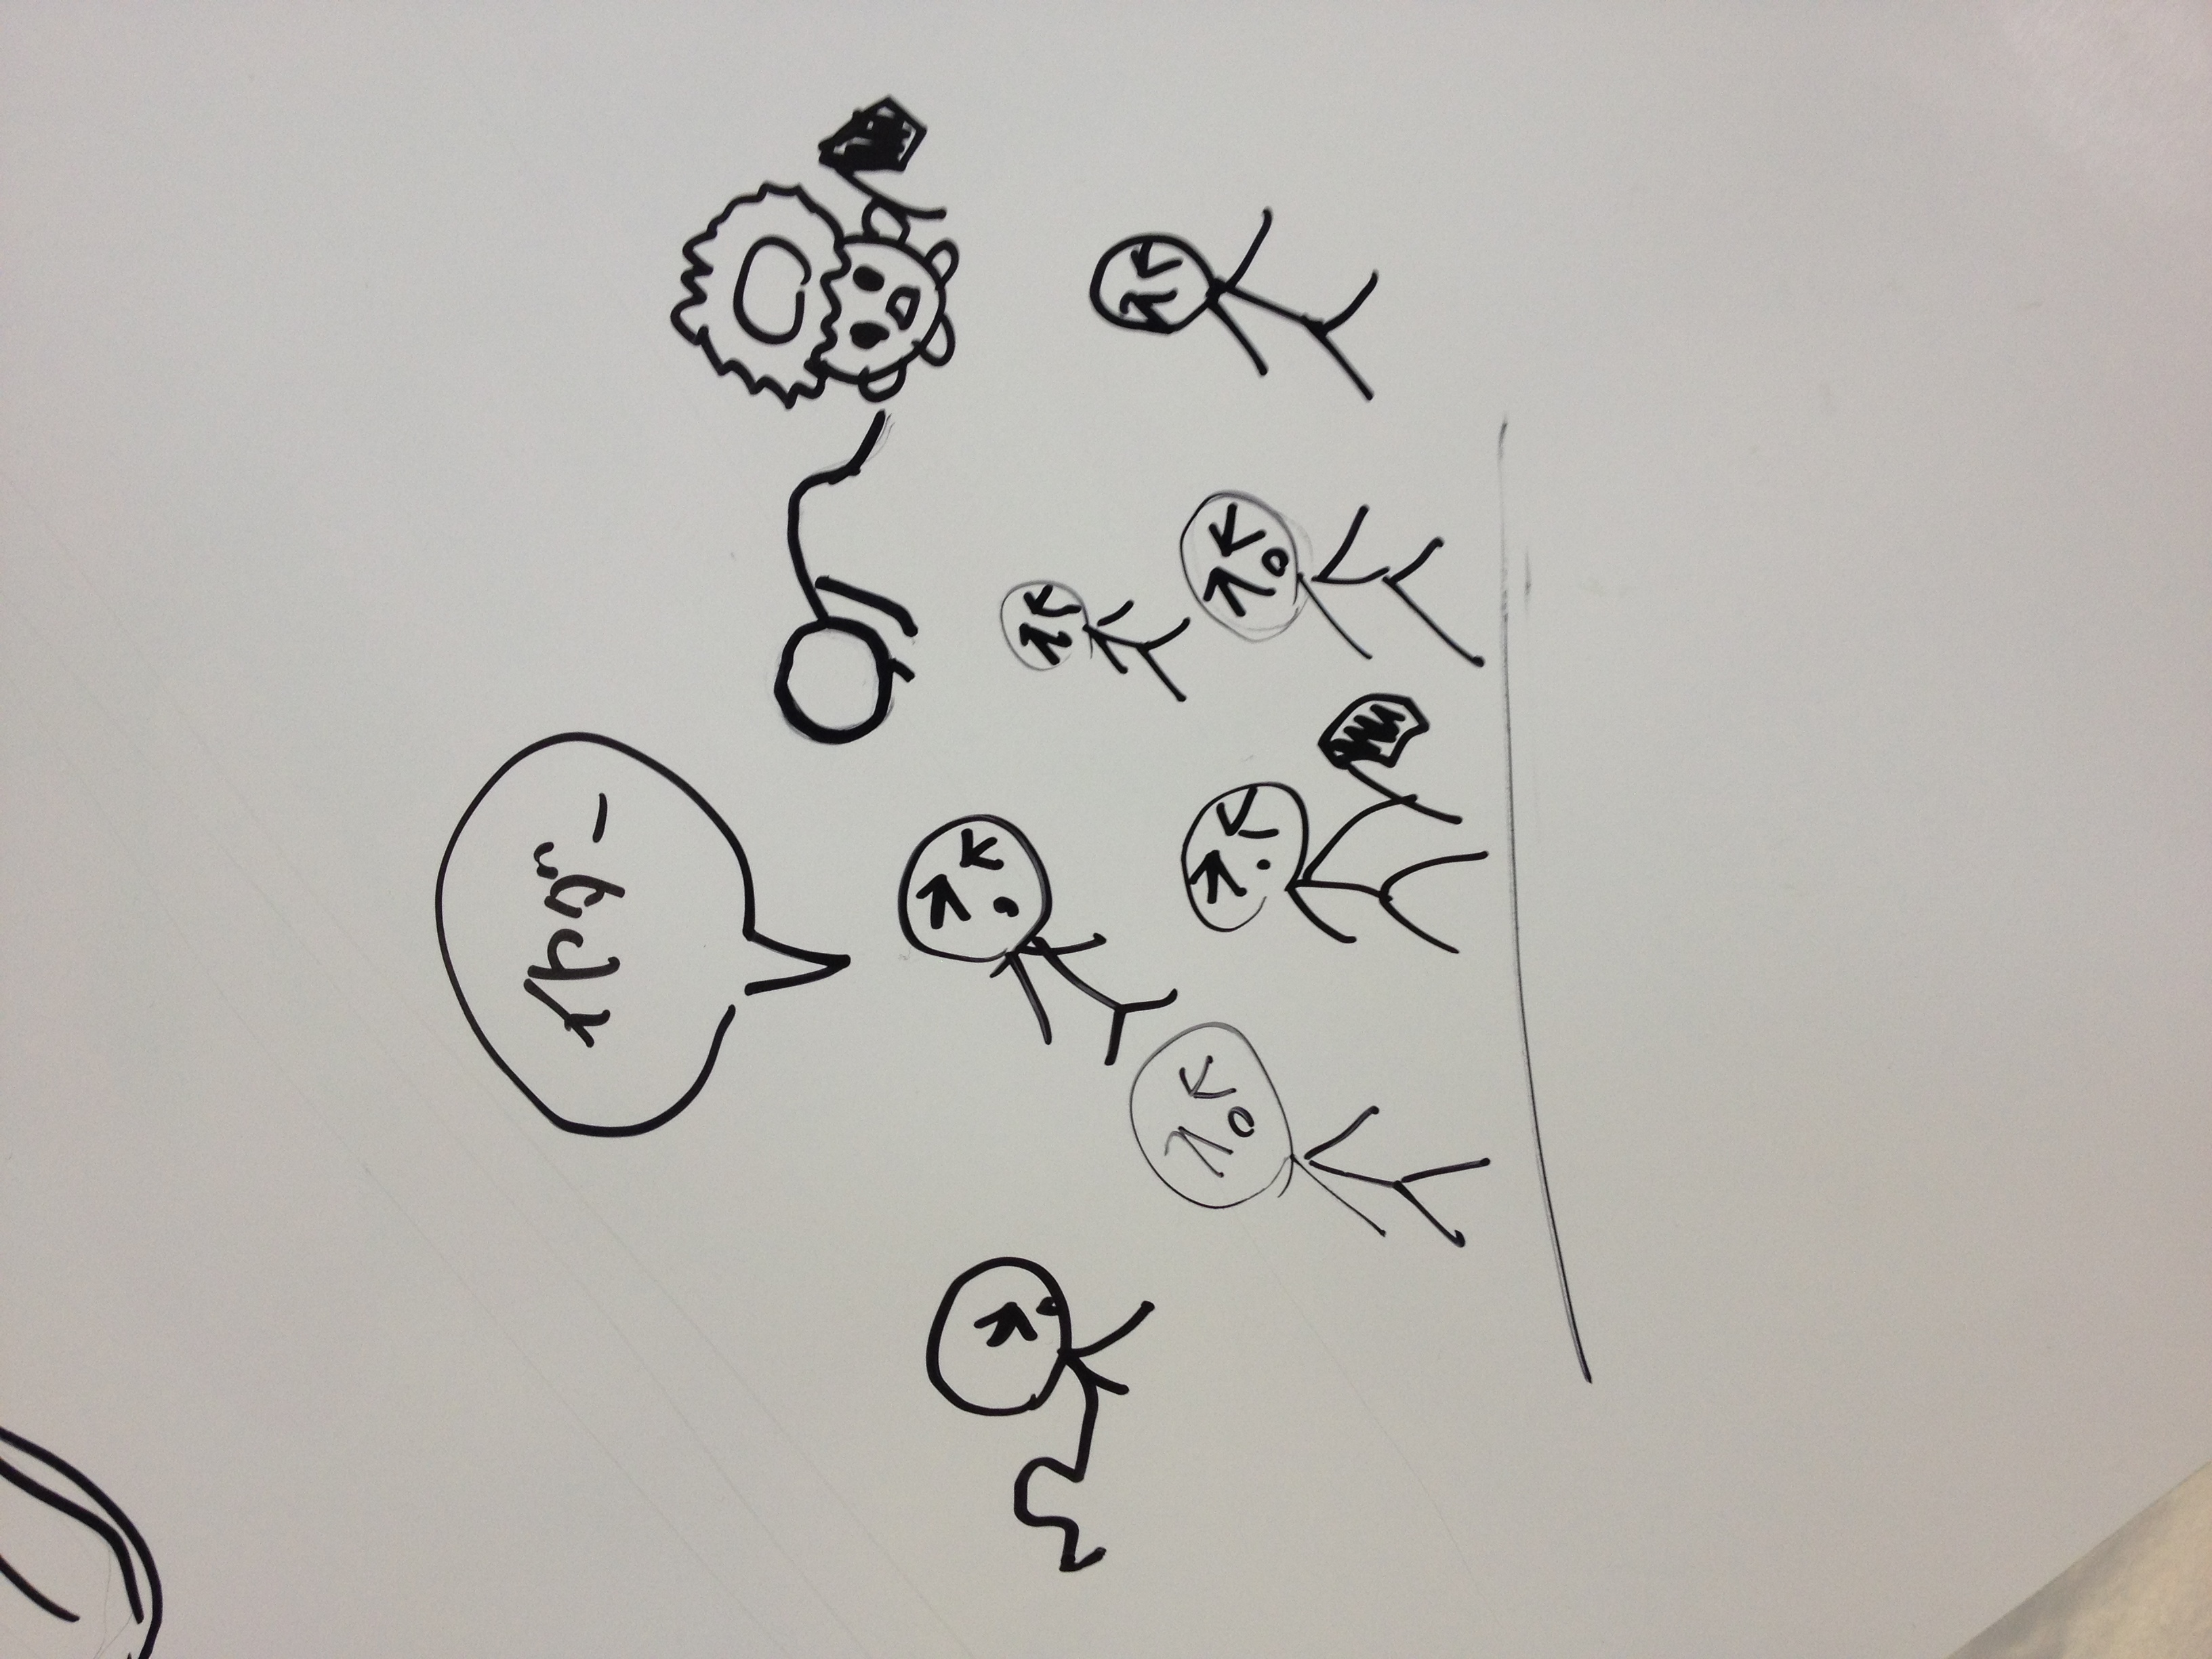 イヤダー